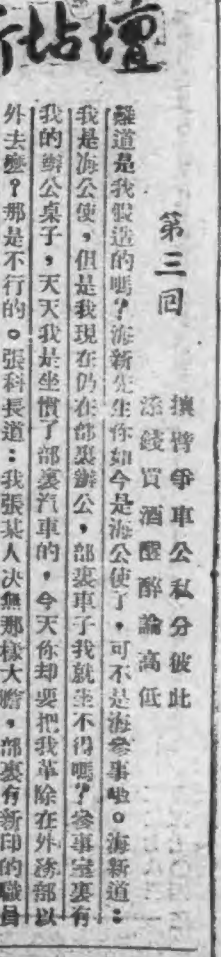 新站壇
第三回
攘臂爭車公私分彼此
添錢買酒醒醉論高低
難道是我假造的嗎？海新先生你如今是海公使了，可不是海參事啦。海新道：
我是海公使，但是我現在仍在部裏辦公，部裏車子我就坐不得嗎？參事室裏有
我的辦公桌子，天天我是坐慣了部裏汽車的，今天你却要把我革除在外務部以
外去麼？那是不行的。張科長道：我張某人决無那樣大膽，部裏有新印的職員